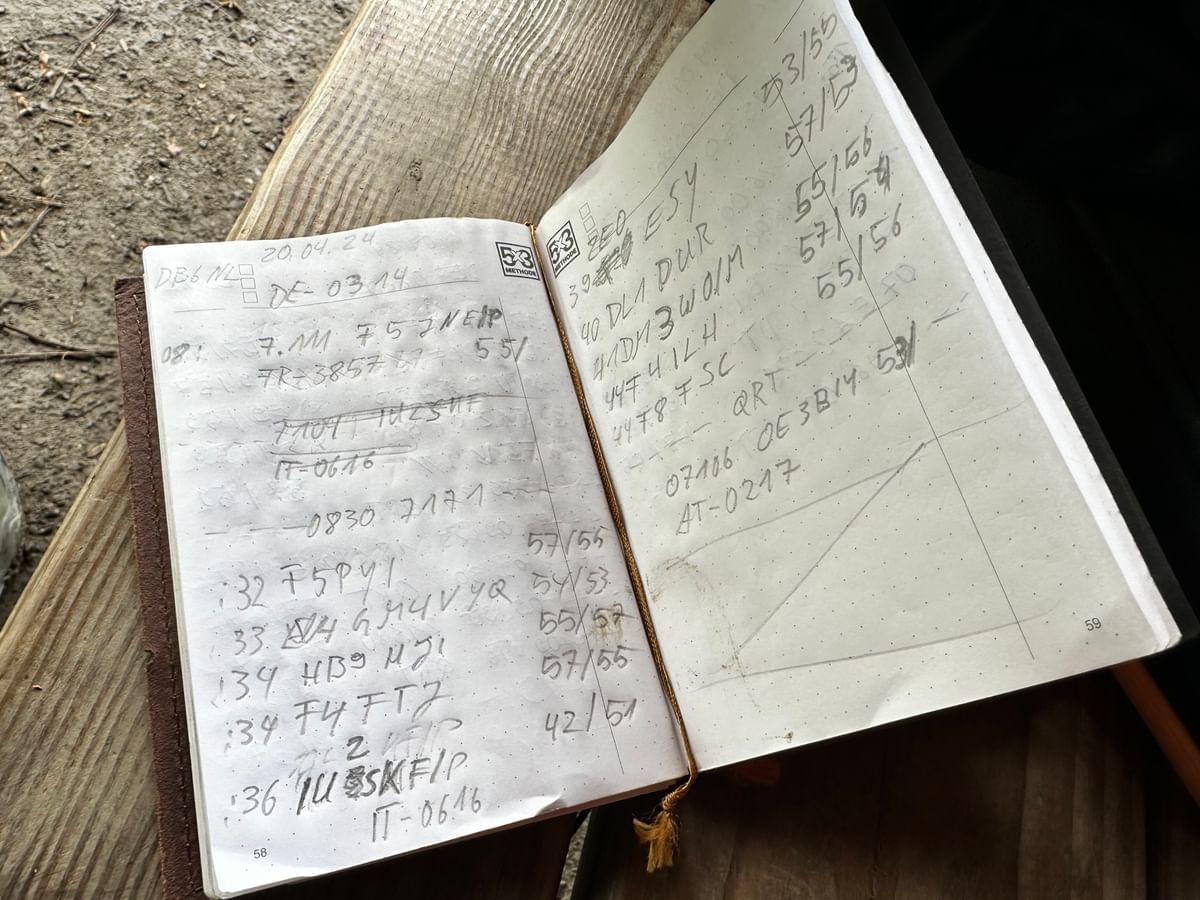 20.04.24
DB6NL
DE-0314
5X3
METHODE
08:
7.111 F5JNE/P
FR-3857 55/
7101 IU2SKF
IT-0616
0830 7171
:32 F5PYI 57/55
:33 GM4VYQ 54/53
:34 HB9MJI 55/57
:34 F4FTJ 57/55
42/51
:36 IU2SKF/P
IT-0616
58
5X3
METHODE
39 2E0ESY 53/55
40 DL1DUR 57/53
41 DM3WO/M 55/56
44 F4ILH 57/54
44 F8FSC 55/56
QRT
07106 OE3BIY 53/
AT-0217
59